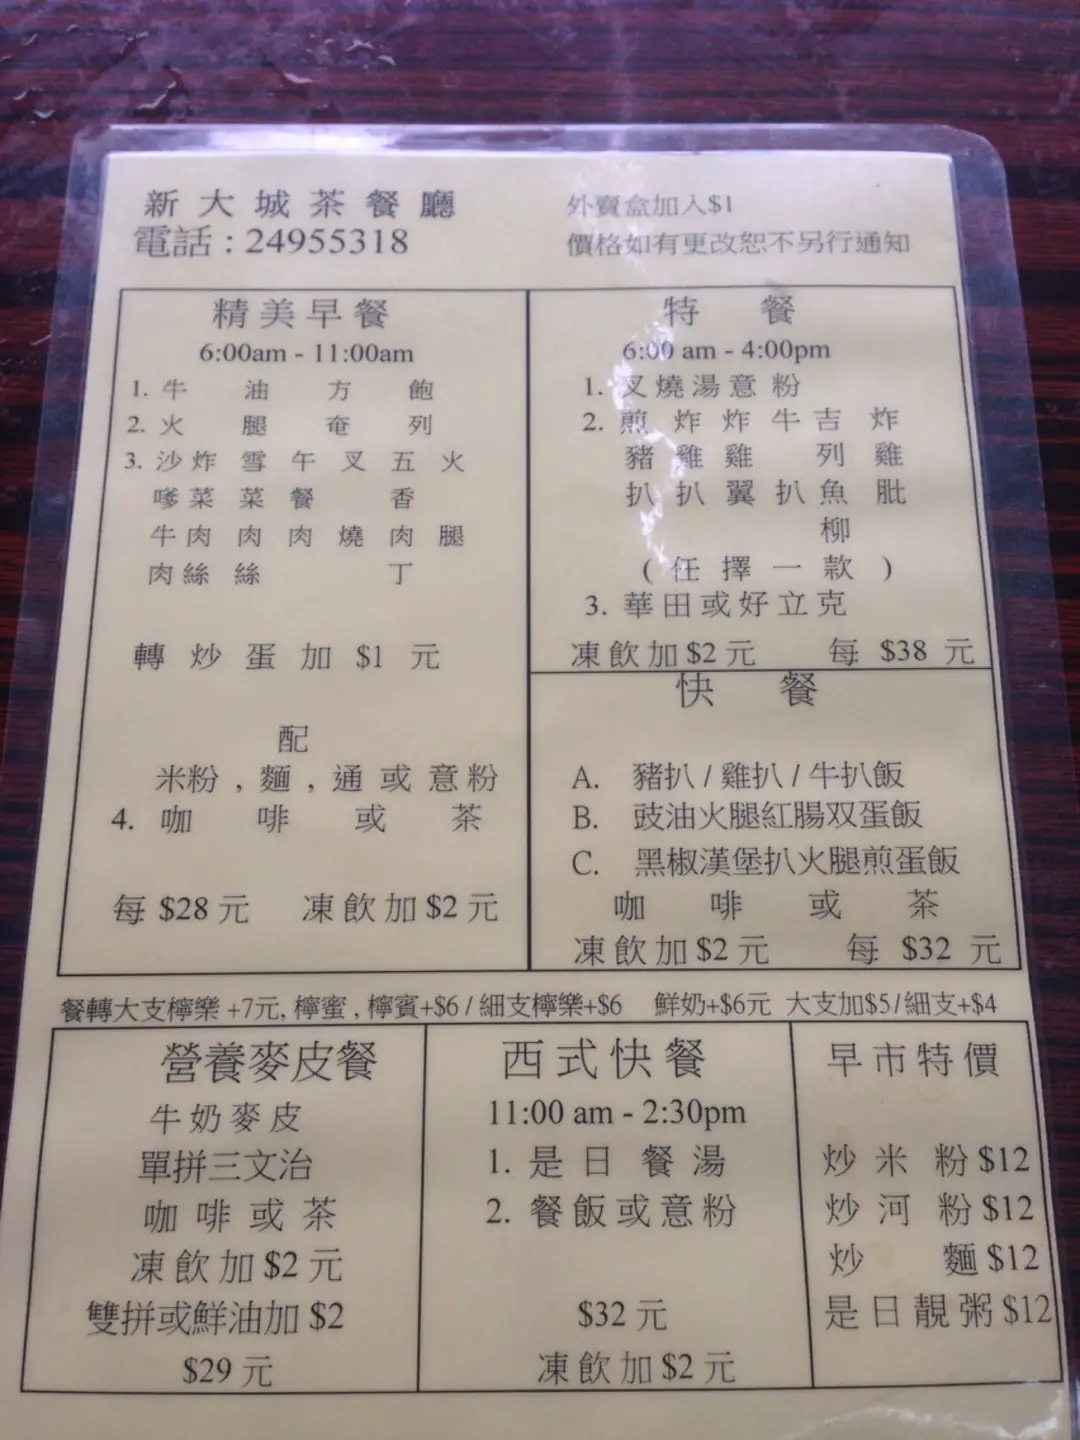 新大城茶餐廳
電話：24955318
外賣盒加入$1
價格如有更改恕不另行通知
精美早餐
6:00am - 11:00am
1. 牛油方飽
2. 火腿奄列
3. 沙炸雪午叉五火
嗲菜菜餐香
牛肉肉肉燒肉腿
肉絲絲丁
轉炒蛋加$1元
配
米粉，麵，通或意粉
4. 咖啡或茶
每$28元 凍飲加$2元
特餐
6:00 am - 4:00pm
1. 叉燒湯意粉
2. 煎炸炸牛吉炸
豬雞雞列雞
扒扒翼扒魚肶
柳
(任擇一款)
3. 華田或好立克
凍飲加$2元 每$38元
快餐
A. 豬扒/雞扒/牛扒飯
B. 豉油火腿紅腸双蛋飯
C. 黑椒漢堡扒火腿煎蛋飯
咖啡或茶
凍飲加$2元 每$32元
餐轉大支檸樂+7元, 檸蜜, 檸賓+$6/細支檸樂+$6 鮮奶+$6元 大支加$5/細支+$4
營養麥皮餐
牛奶麥皮
單拼三文治
咖啡或茶
凍飲加$2元
雙拼或鮮油加$2
$29元
西式快餐
11:00 am - 2:30pm
1. 是日餐湯
2. 餐飯或意粉
$32元
凍飲加$2元
早市特價
炒米粉$12
炒河粉$12
炒麵$12
是日靚粥$12